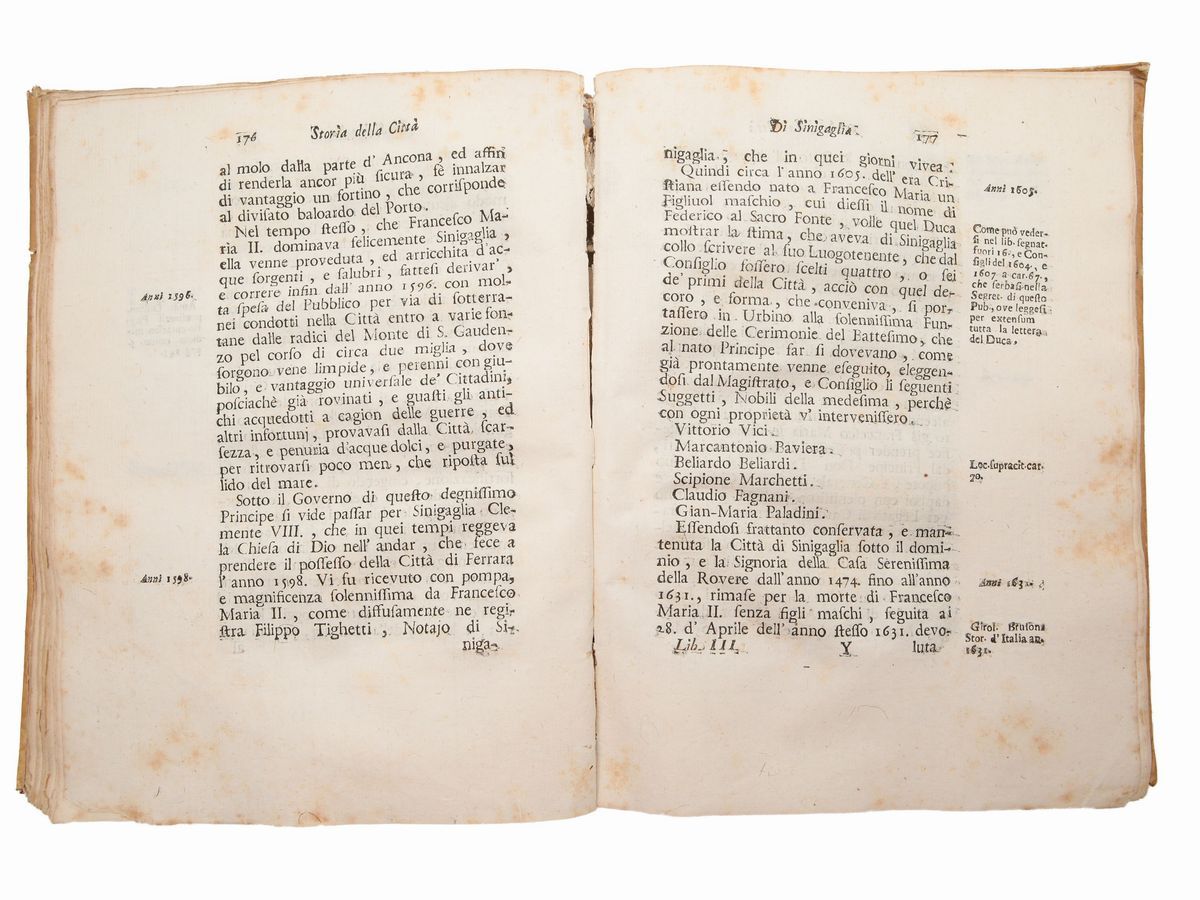 176
Storia della Città
al molo dalla parte d' Ancona, ed affin
di renderla ancor più sicura, fè innalzar
di vantaggio un fortino, che corrisponde
al divisato baloardo del Porto.
Nel tempo stesso, che Francesco Ma-
ria II. dominava felicemente Sinigaglia,
ella venne proveduta, ed arricchita d'ac-
que sorgenti, e salubri, fattesi derivar',
e correre infin dall' anno 1596. con mol-
ta spesa del Pubblico per via di sotterra-
nei condotti nella Città entro a varie fon-
tane dalle radici del Monte di S. Gauden-
zo pel corso di circa due miglia, dove
sorgono vene limpide, e perenni con giu-
bilo, e vantaggio universale de' Cittadini,
posciachè già rovinati, e guasti gli anti-
chi acquedotti a cagion delle guerre, ed
altri infortunj, provavasi dalla Città scar-
sezza, e penuria d'acque dolci, e purgate,
per ritrovarsi poco men, che riposta sul
lido del mare.
Sotto il Governo di questo degnissimo
Principe si vide passar per Sinigaglia Cle-
mente VIII., che in quei tempi reggeva
la Chiesa di Dio nell' andar, che fece a
prendere il possesso della Città di Ferrara
l'anno 1598. Vi fu ricevuto con pompa,
e magnificenza solennissima da Francesco
Maria II., come diffusamente ne regi-
stra Filippo Tighetti, Notajo di Si-
niga-
Anni 1596.
Anni 1598.
Di Sinigaglia.
177
nigaglia, che in quei giorni vivea.
Quindi circa l'anno 1605. dell' era Cri-
stiana essendo nato a Francesco Maria un
Figliuol maschio, cui diessi il nome di
Federico al Sacro Fonte, volle quel Duca
mostrar la stima, che aveva di Sinigaglia
collo scrivere al suo Luogotenente, che dal
Consiglio fossero scelti quattro, o sei
de' primi della Città, acciò con quel de-
coro, e forma, che conveniva, si por-
tassero in Urbino alla solennissima Fun-
zione delle Cerimonie del Battesimo, che
al nato Principe far si dovevano, come
già prontamente venne eseguito, eleggen-
dosi dal Magistrato, e Consiglio li seguenti
Suggetti, Nobili della medesima, perchè
con ogni proprietà v' intervenissero.
Vittorio Vici.
Marcantonio Baviera.
Beliardo Beliardi.
Scipione Marchetti.
Claudio Fagnani.
Gian-Maria Paladini.
Essendosi frattanto conservata, e man-
tenuta la Città di Sinigaglia sotto il domi-
nio, e la Signoria della Casa Serenissima
della Rovere dall' anno 1474. fino all'anno
1631., rimase per la morte di Francesco
Maria II. senza figli maschi, seguita ai
28. d' Aprile dell' anno stesso 1631. devo-
Lib. III. Y luta
Anni 1605.
Come può veder-
si nel lib. segnat.
fuori 16., e Con-
sigli del 1604., e
1607. a car. 67.,
che serbasi nella
Segret. di questo
Pub., ove leggesi
per extensum
tutta la lettera
del Duca.
Loc. supracit. car.
70.
Anni 1631.
Girol. Brusoni
Stor. d'Italia an.
1631.